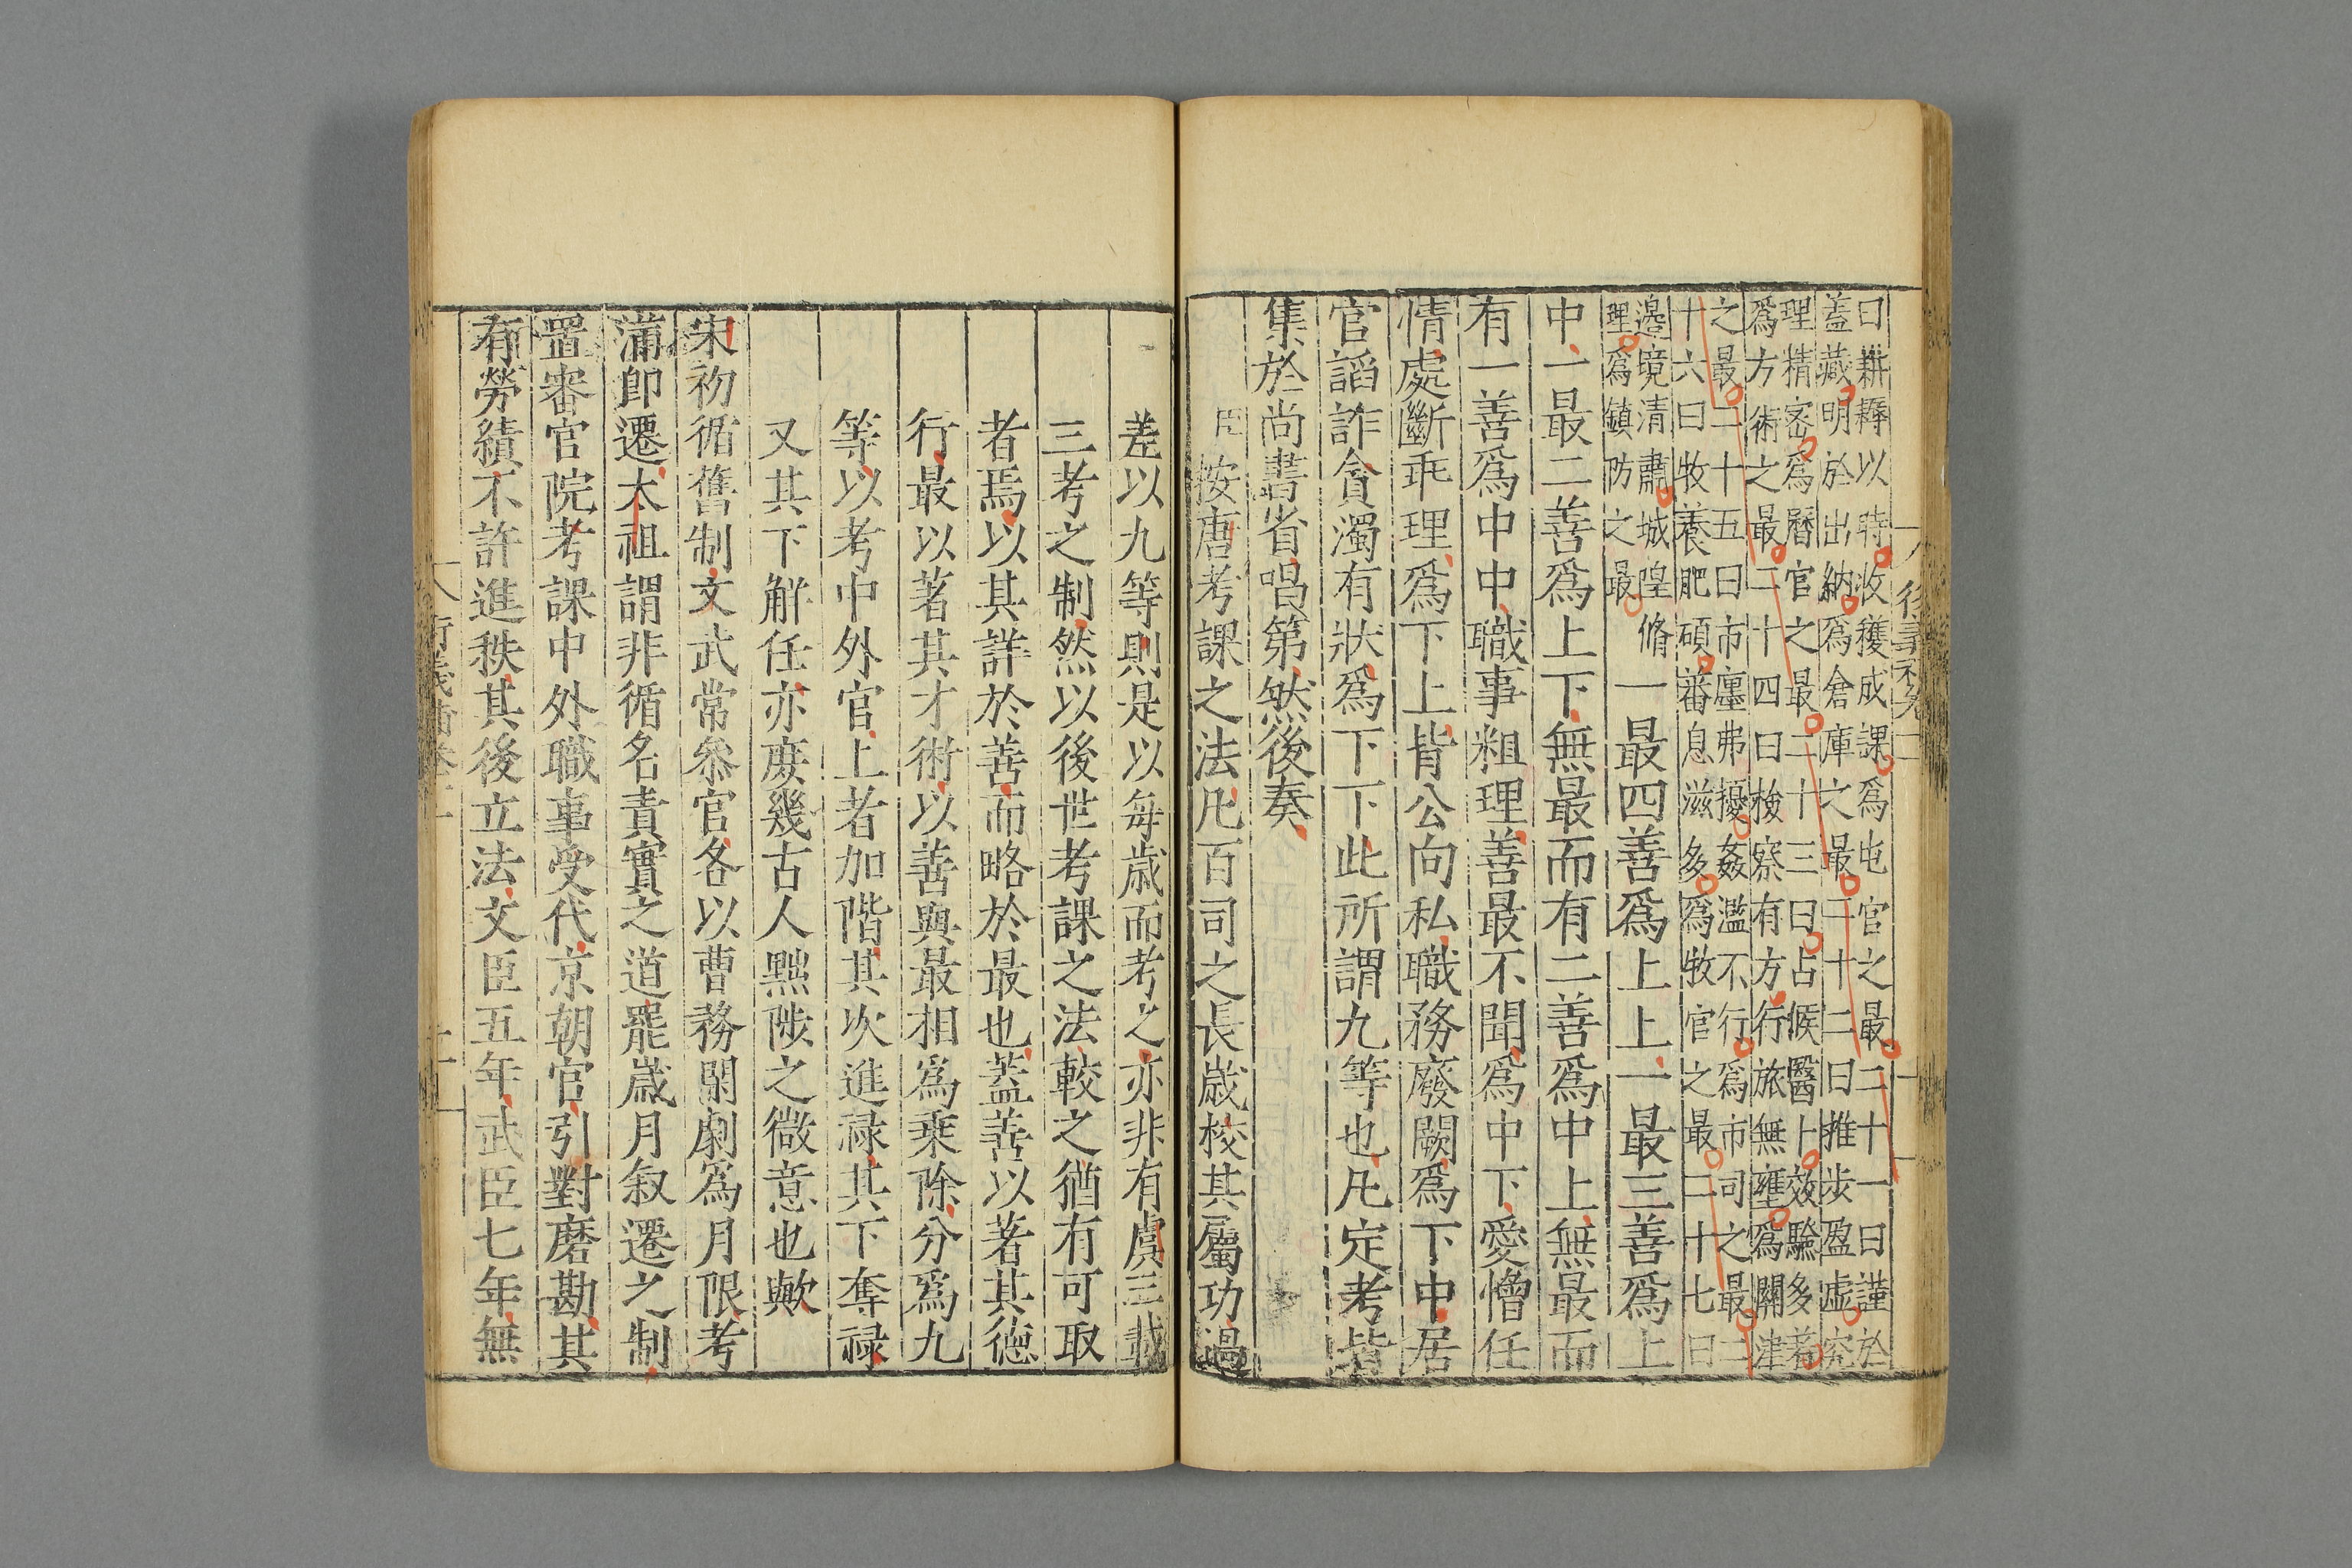 曰耕耨以時收穫成課爲屯官之最二十一曰謹於
蓋藏明於出納爲倉庫之最二十二曰推步盈虛究
理精密爲曆官之最二十三曰占候醫卜效驗多著
爲方術之最二十四曰檢察有方行旅無壅爲關津
之最二十五曰市廛弗擾姦濫不行爲市司之最二
十六曰牧養肥碩蕃息滋多爲牧官之最二十七曰
邊境清肅城隍脩
理爲鎮防之最
一最四善爲上上一最三善爲上
中一最二善爲上下無最而有二善爲中上無最而
有一善爲中中職事粗理善最不聞爲中下愛憎任
情處斷乖理爲下上背公向私職務廢闕爲下中居
官諂詐貪濁有狀爲下下此所謂九等也凡定考皆
集於尚書省唱第然後奏
臣按唐考課之法凡百司之長歲校其屬功過
差以九等則是以每歲而考之亦非有虞三載
三考之制然以後世考課之法較之猶有可取
者焉以其詳於善而略於最也蓋善以著其德
行最以著其才術以善與最相爲乗除分爲九
等以考中外官上者加階其次進祿其下奪祿
又其下解任亦庶幾古人黜陟之微意也歟
宋初循舊制文武常參官各以曹務閑劇爲月限考
滿卽遷太祖謂非循名責實之道罷歲月叙遷之制
置審官院考課中外職事受代京朝官引對磨勘其
有勞績不許進秩其後立法文臣五年武臣七年無